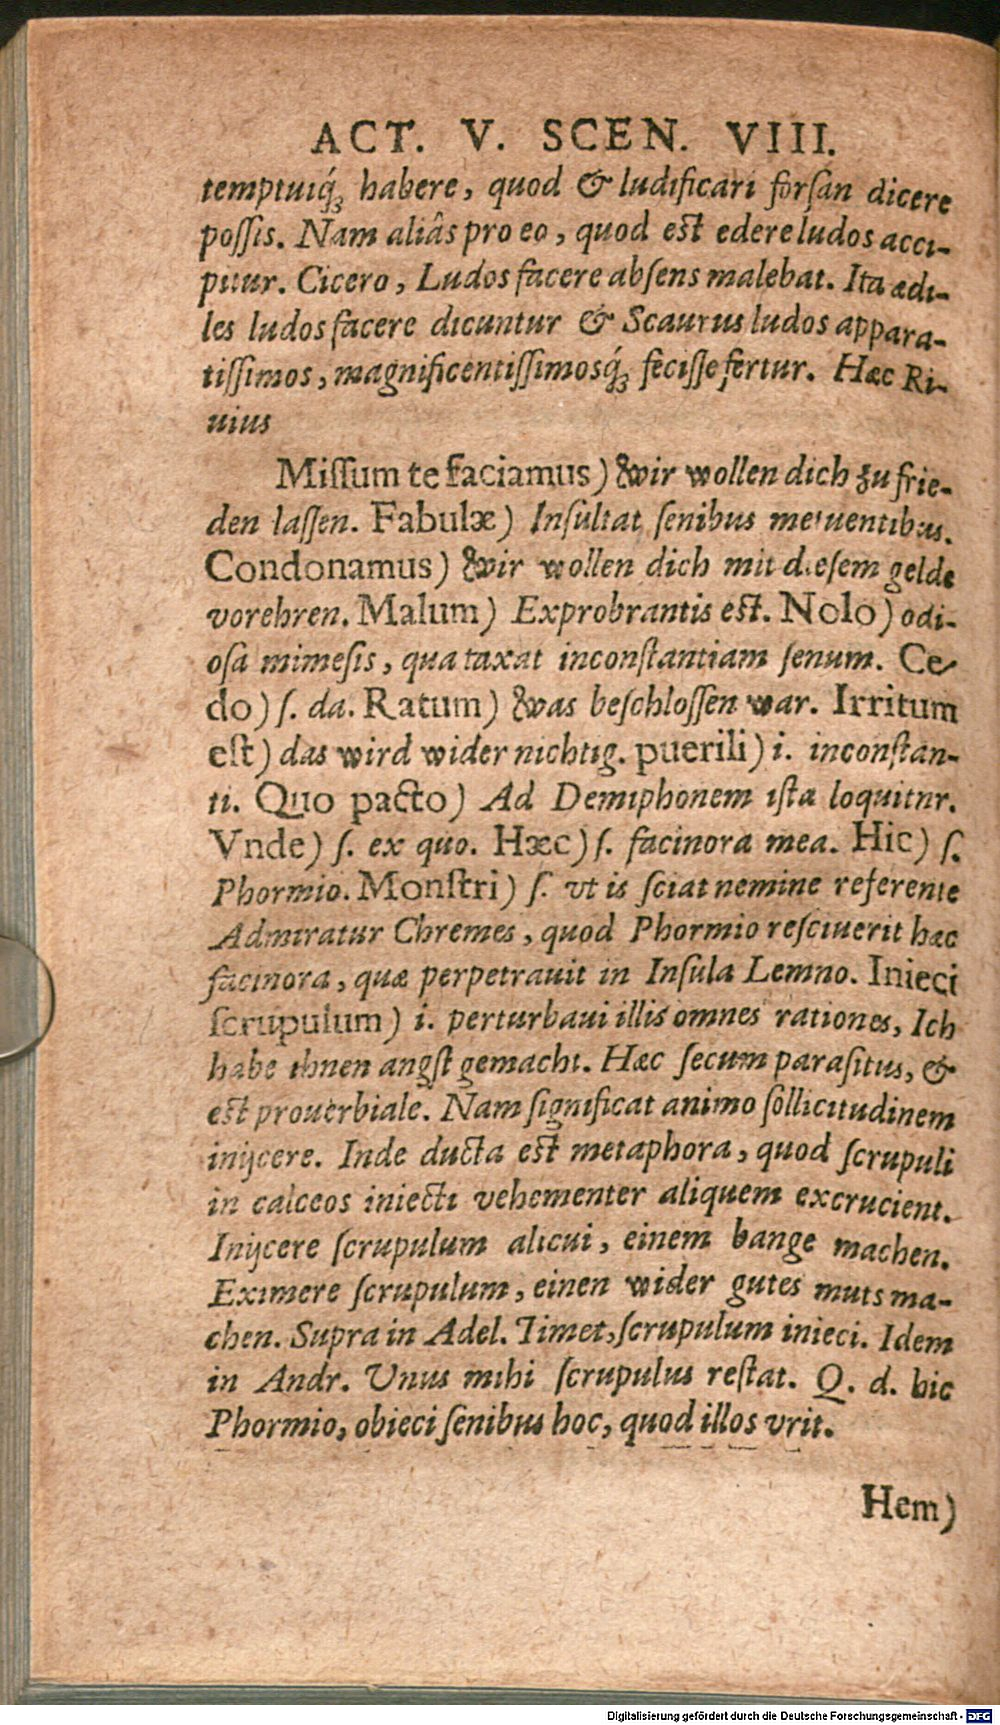 ACT. V. SCEN. VIII.
temptuiq́ꝫ habere, quod & ludificari forſan dicere
poſſis. Nam aliâs pro eo, quod eſt edere ludos acci-
pitur. Cicero, Ludos facere abſens malebat. Ita ædi-
les ludos facere dicuntur & Scaurus ludos appara-
tiſſimos, magnificentiſſimosq́ꝫ feciſſe fertur. Hæc Ri-
uius
Miſſum te faciamus) wir wollen dich zu frie-
den laſſen. Fabulæ) Inſultat ſenibus metuentibus.
Condonamus) wir wollen dich mit dieſem gelde
vorehren. Malum) Exprobrantis eſt. Nolo) odi-
oſa mimeſis, qua taxat inconſtantiam ſenum. Ce-
do) ſ. da. Ratum) was beſchloſſen war. Irritum
eſt) das wird wider nichtig. puerili) i. inconſtan-
ti. Quo pacto) Ad Demiphonem iſta loquitnr.
Vnde) ſ. ex quo. Hæc) ſ. facinora mea. Hic) ſ.
Phormio. Monſtri) ſ. vt is ſciat nemine referente
Admiratur Chremes, quod Phormio reſciuerit hæc
facinora, quæ perpetrauit in Inſula Lemno. Inieci
ſcrupulum) i. perturbaui illis omnes rationes, Ich
habe ihnen angſt gemacht. Hæc ſecum paraſitus, &
eſt prouerbiale. Nam ſignificat animo ſollicitudinem
inijcere. Inde ducta eſt metaphora, quod ſcrupuli
in calceos iniecti vehementer aliquem excrucient.
Inijcere ſcrupulum alicui, einem bange machen.
Eximere ſcrupulum, einen wider gutes muts ma-
chen. Supra in Adel. Timet, ſcrupulum inieci. Idem
in Andr. Unus mihi ſcrupulus reſtat. Q. d. hic
Phormio, obieci ſenibus hoc, quod illos vrit.
Hem)
Digitalisierung gefördert durch die Deutsche Forschungsgemeinschaft - DFG